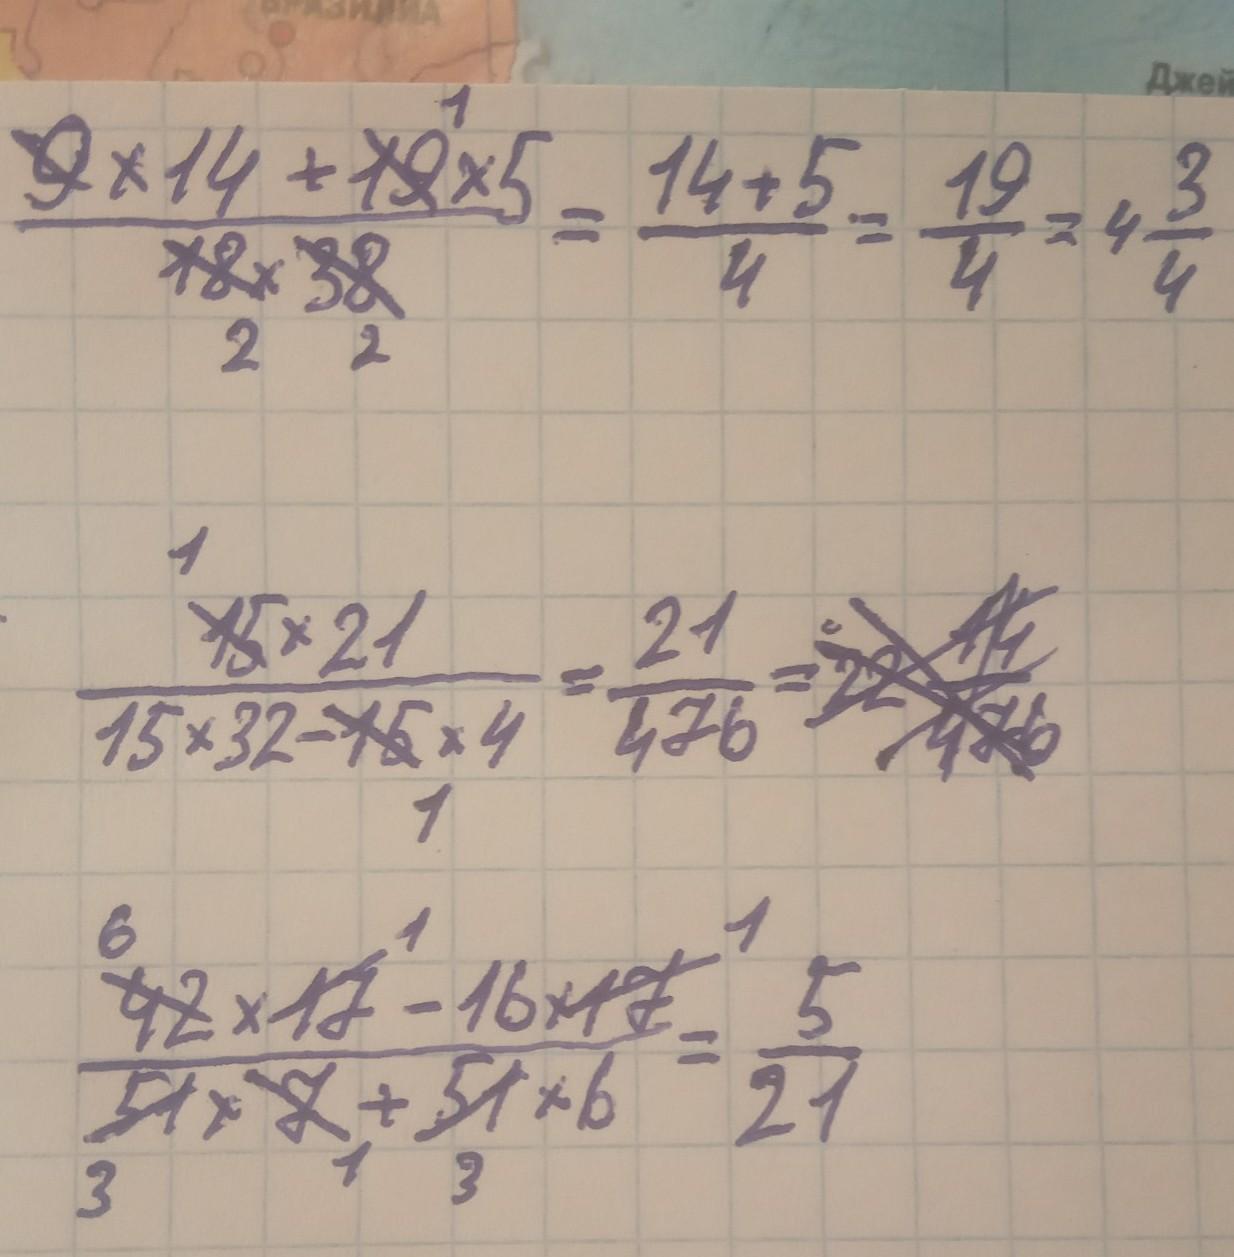 БРАЗИЛИА
Джей
1
9 × 14 + 19 × 5 / 18 × 38 = 14 + 5 / 4 = 19 / 4 = 4 3/4
2 2
1
15 × 21 / 15 × 32 - 15 × 4 = 21 / 476 = 22 14/476
1
6 1 1
42 × 17 - 16 × 17 / 51 × 7 + 51 × 6 = 5 / 21
3 1 3